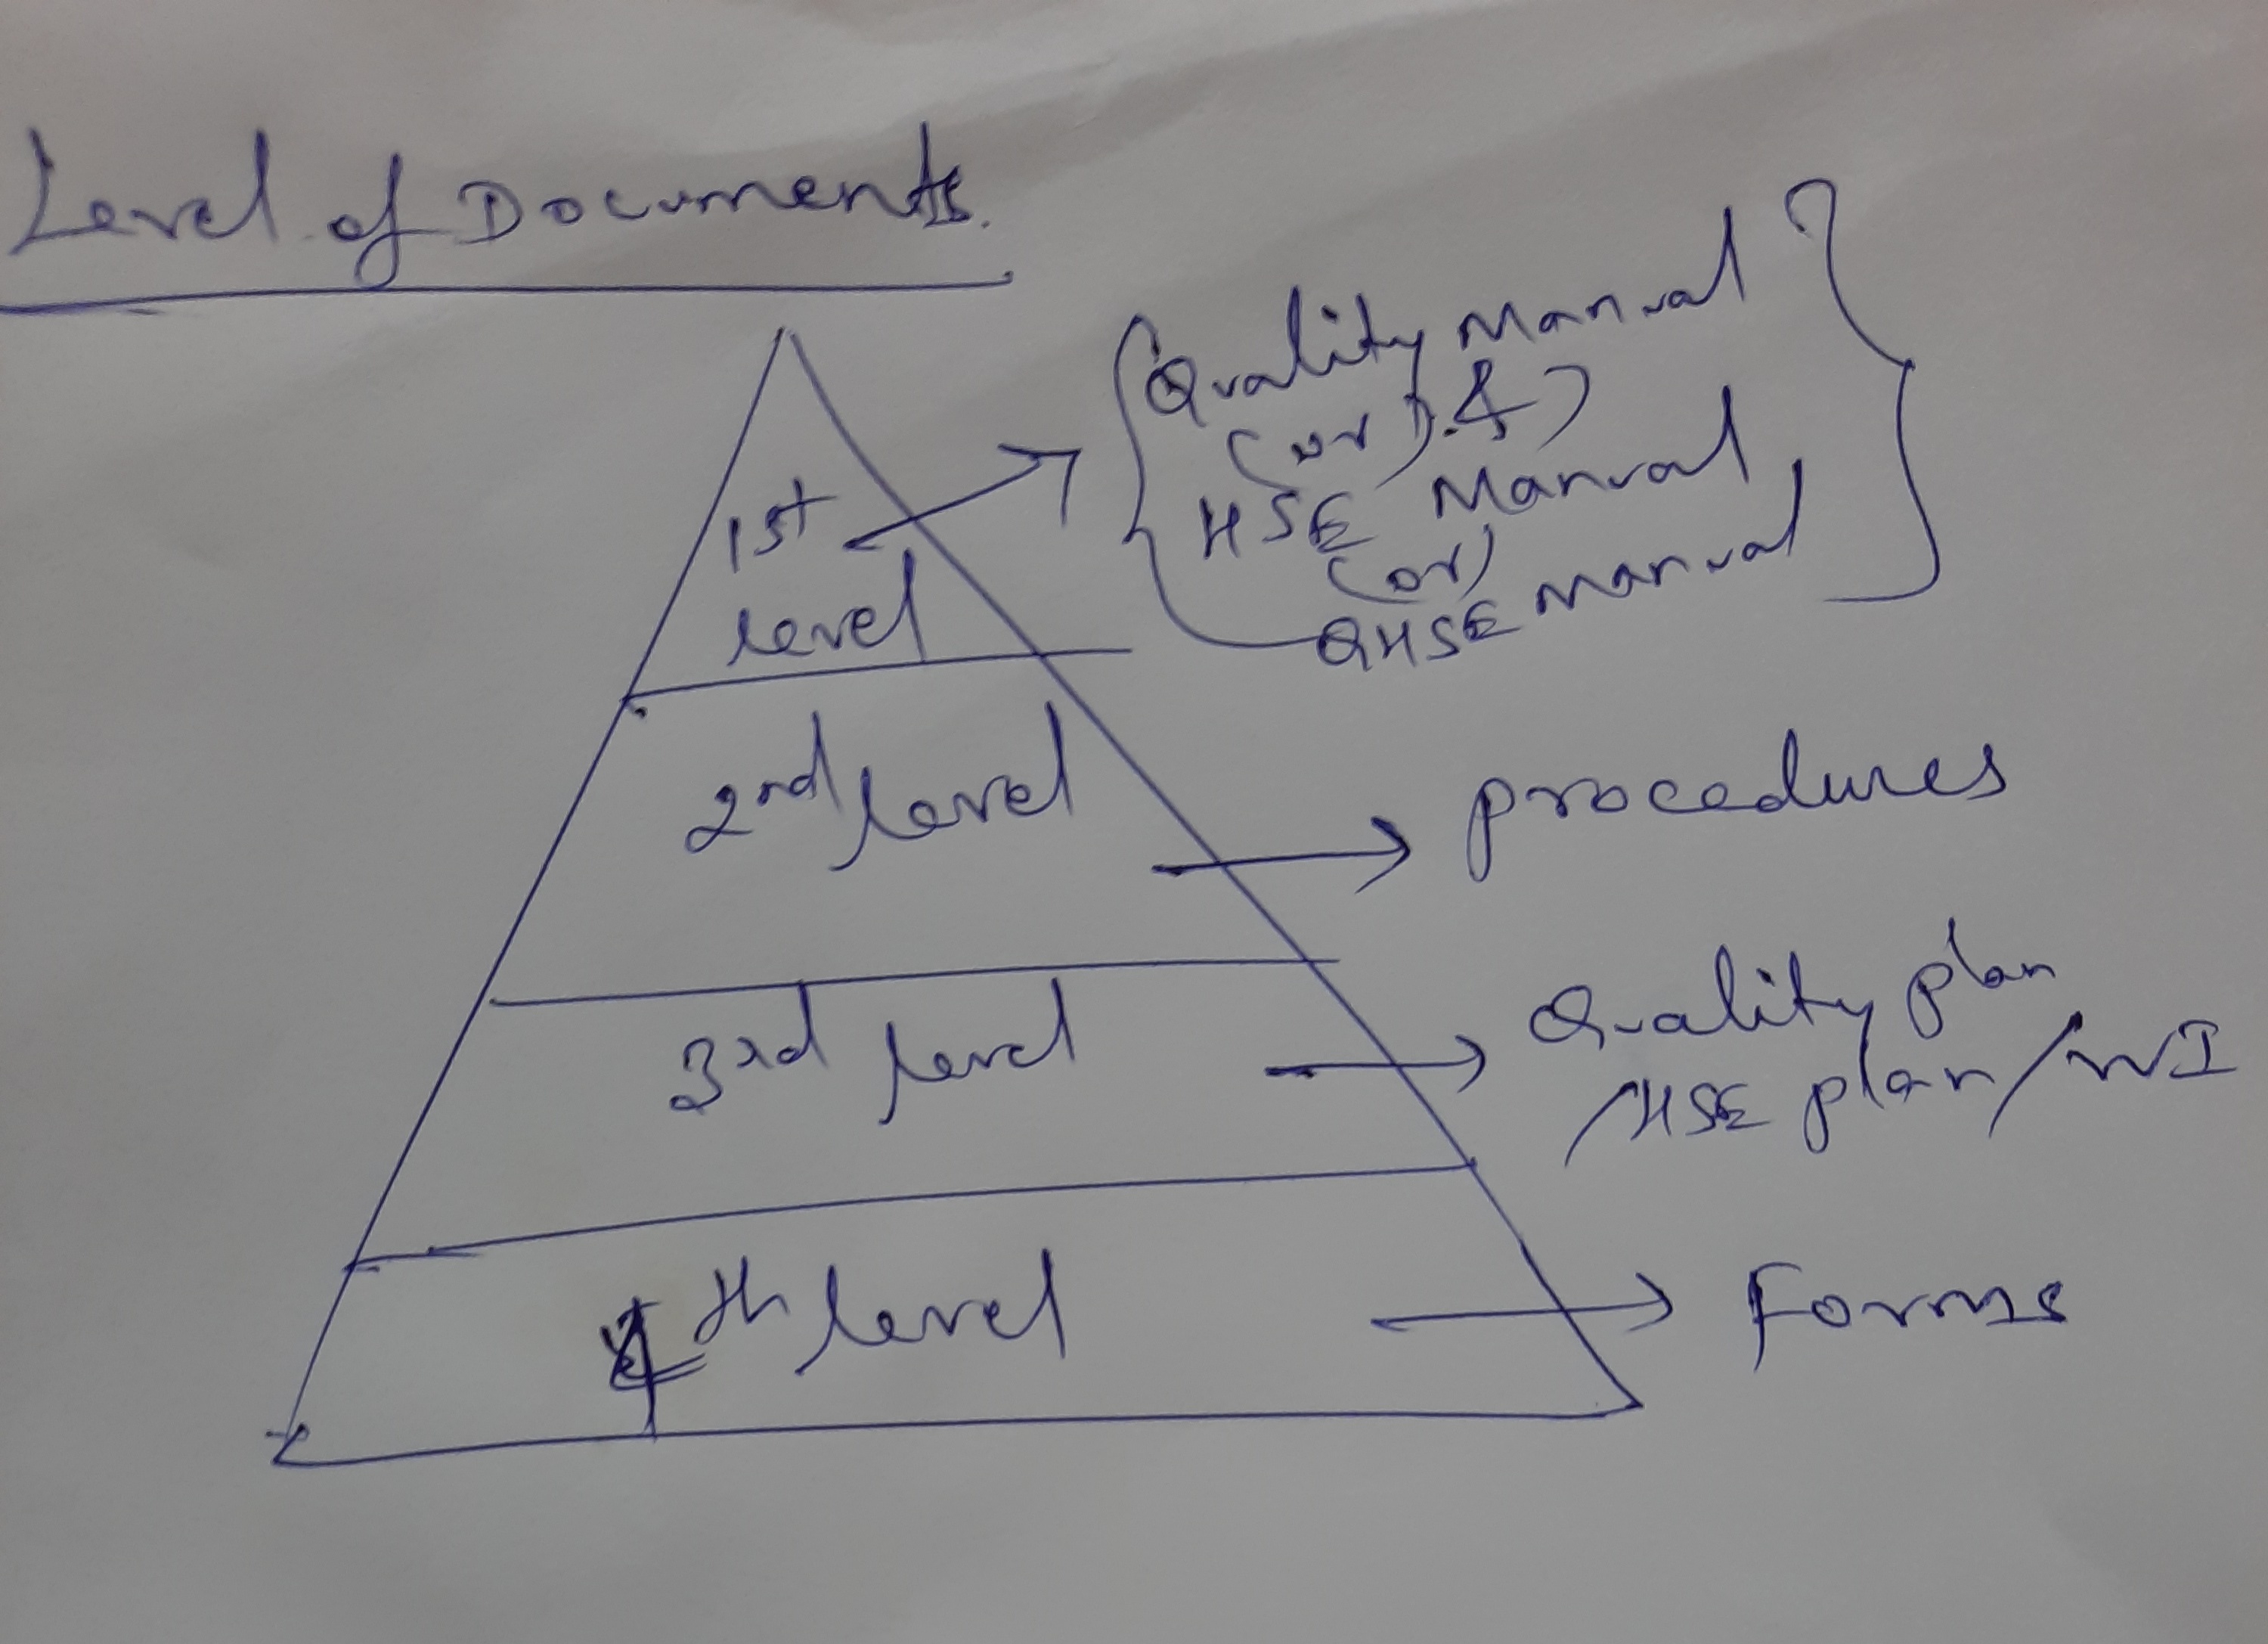 Level of Documents.
Quality Manual
(or) &
HSE Manual
(or)
QHSE Manual
1st
level
2nd level
procedures
3rd level
Quality plan
/HSE plan/WI
4th level
Forms